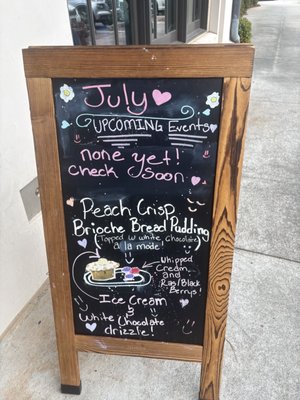 July
UPCOMING Events
none yet!
Check Soon.
Peach Crisp
Brioche Bread Pudding
(Topped w white Chocolate)
a la mode!
Whipped
Cream
and
Ras/Black
Berrys!
Ice Cream
&
White Chocolate
drizzle!